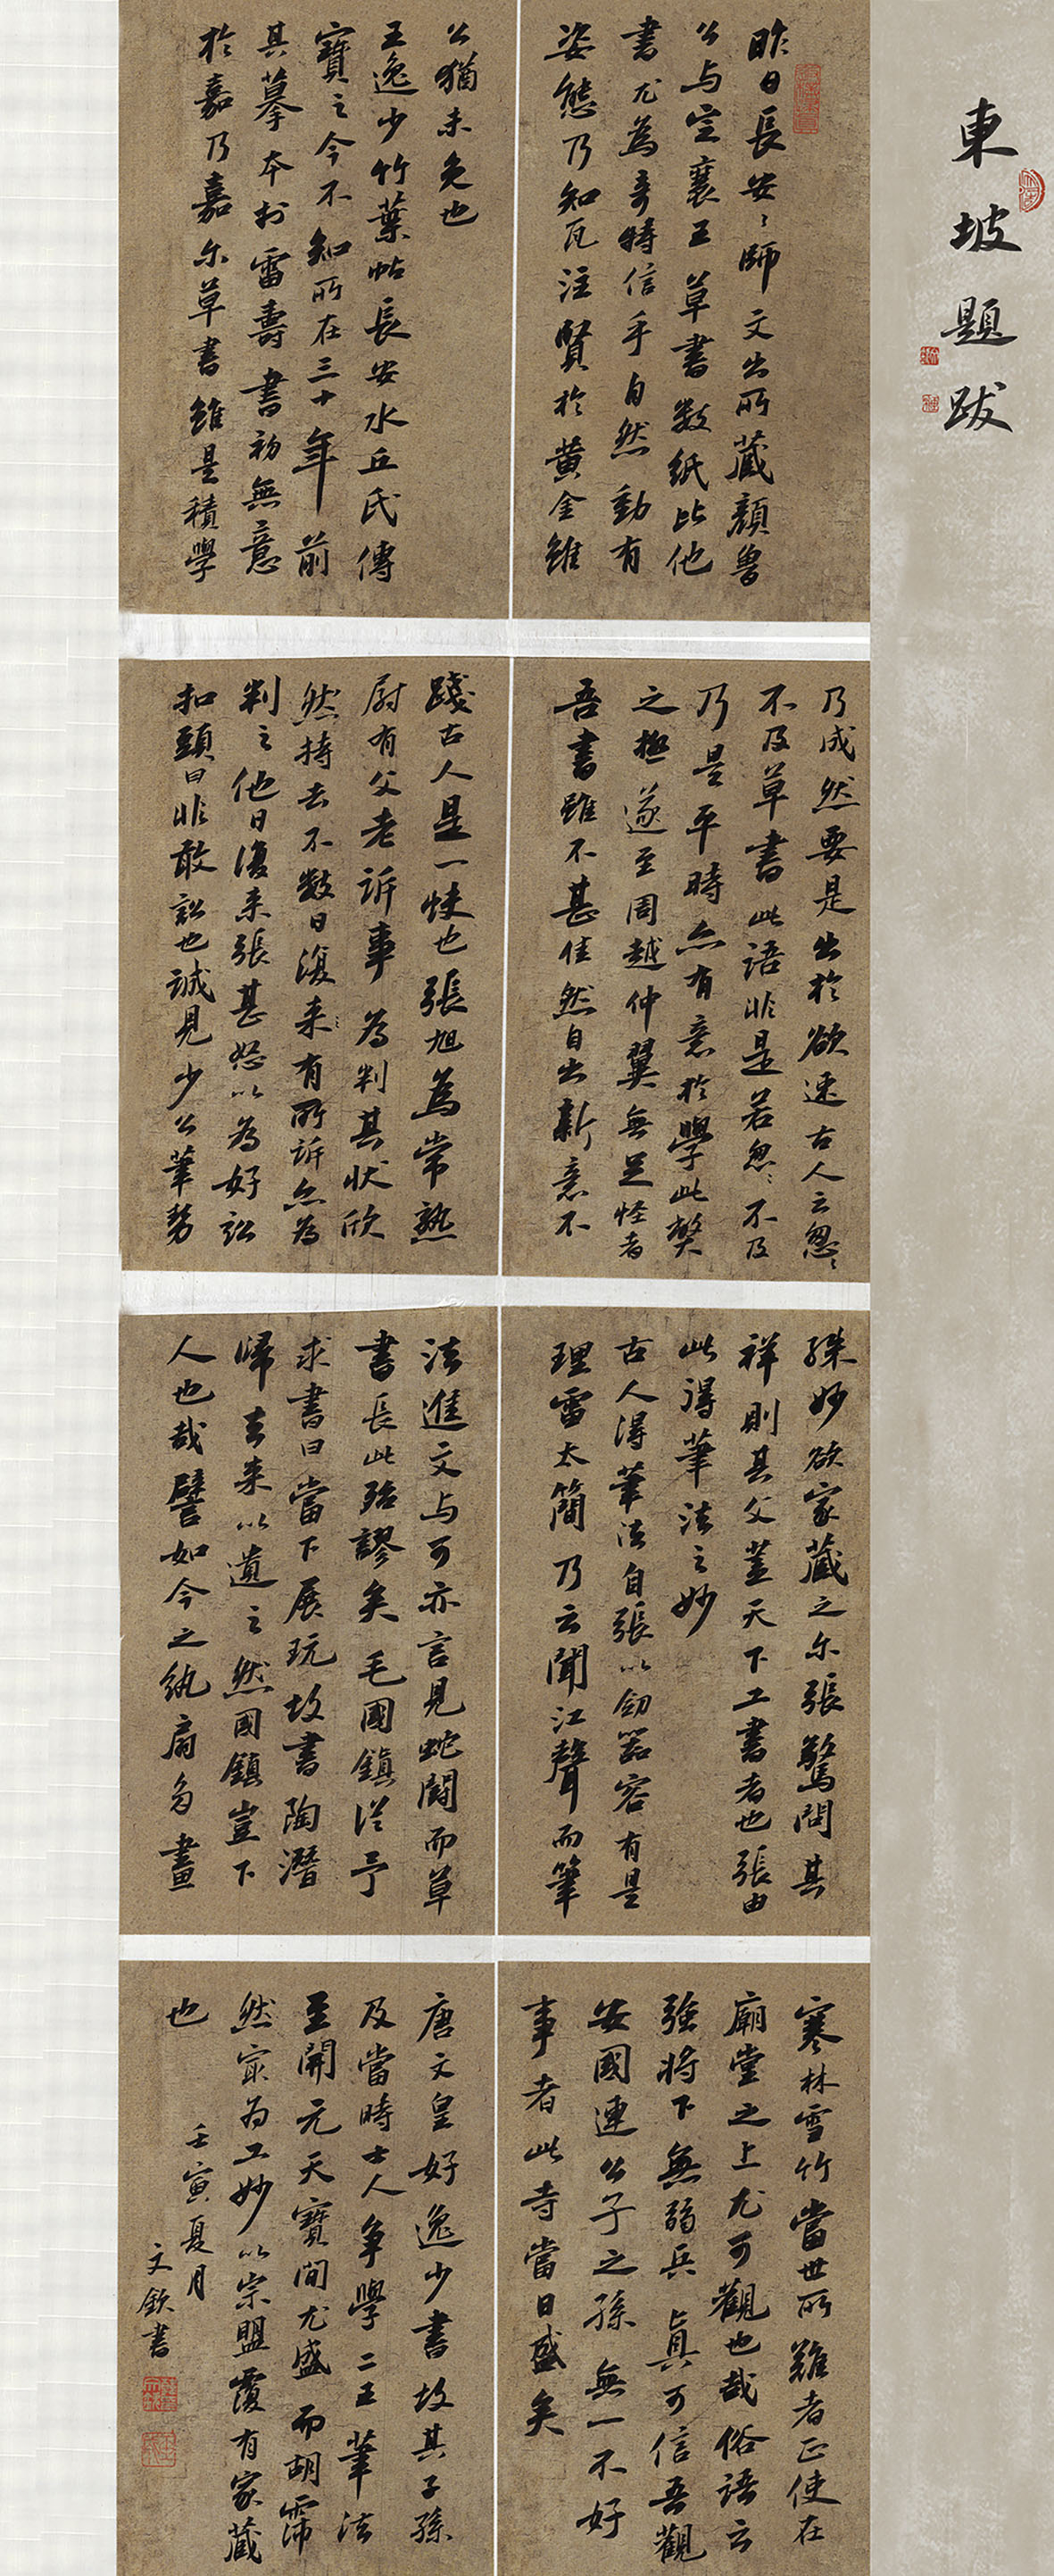 東坡題跋
昨日長安ミ師文出所藏顏魯
公与定襄王草書數紙比他
書尤為奇特信手自然動有
姿態乃知瓦注賢於黃金雖
公猶未免也
王逸少竹葉帖長安水丘氏傳
寶之今不知所在三十年前
其摹本於雷壽
書初無意
於嘉乃嘉尔草書雖是積學
乃成然要是出於欲速古人云怱ミ
不及草書此語非是若怱ミ不及
乃是平時亦有意於學此弊
之極遂至周越仲翼無足怪者
吾書雖不甚佳然自出新意不
踐古人是一快也張旭為常熟
尉有父老訴事為判其狀欣
然持去不數日復来ミ有所訴亦為
判之他日復来張甚怒以為好訟
扣頭曰非敢訟也誠見少公筆勢
殊妙欲家藏之尔張驚問其
祥則其父蓋天下工書者也張由
此得筆法之妙
古人得筆法自張以劒器容有是
理雷太簡乃云聞江聲而筆
法進文与可亦言見蛇鬪而草
書長此殆謬矣毛國鎮從予
求書曰當下展玩故書陶潛
歸去来以遺之然國鎮豈下
人也哉譬如今之紈扇多畫
寒林雪竹當世所難者正使在
廟堂之上尤可觀也哉俗語云
強將下無弱兵真可信吾觀
安國連公子之孫無一不好
事者此寺當日盛矣
唐文皇好逸少書故其子孫
及當時士人争學二王筆法
至開元天寶間尤盛而胡霈
然冣为工妙以宗盟覆有家藏
也
壬寅夏月
文欽書